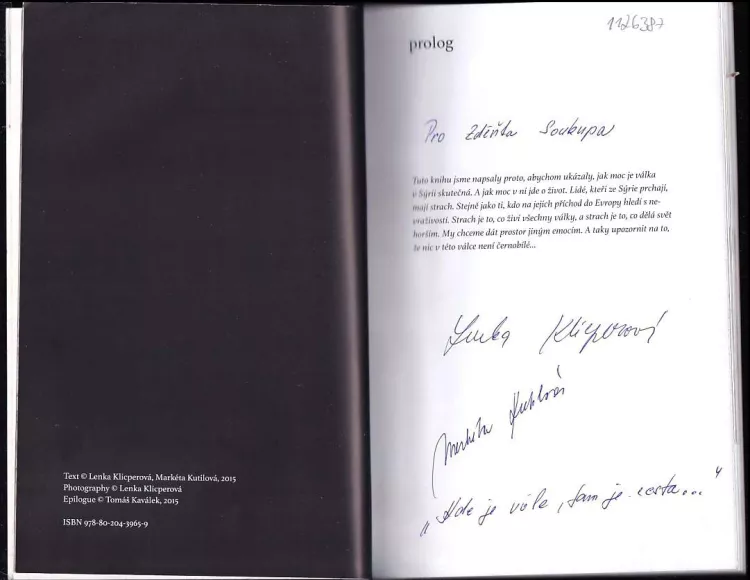 Text © Lenka Klicperová, Markéta Kutilová, 2015
Photography © Lenka Klicperová
Epilogue © Tomáš Kaválek, 2015
ISBN 978-80-204-3965-9
1126387
prolog
Pro Zdeňka Soukupa
Tuto knihu jsme napsaly proto, abychom ukázaly, jak moc je válka
v Sýrii skutečná. A jak moc v ní jde o život. Lidé, kteří ze Sýrie prchají,
mají strach. Stejně jako ti, kdo na jejich příchod do Evropy hledí s ne-
vraživostí. Strach je to, co živí všechny války, a strach je to, co dělá svět
horším. My chceme dát prostor jiným emocím. A taky upozornit na to,
že nic v této válce není černobílé...
Lenka Klicperová
Markéta Kutilová
„Kde je vůle, tam je cesta..."